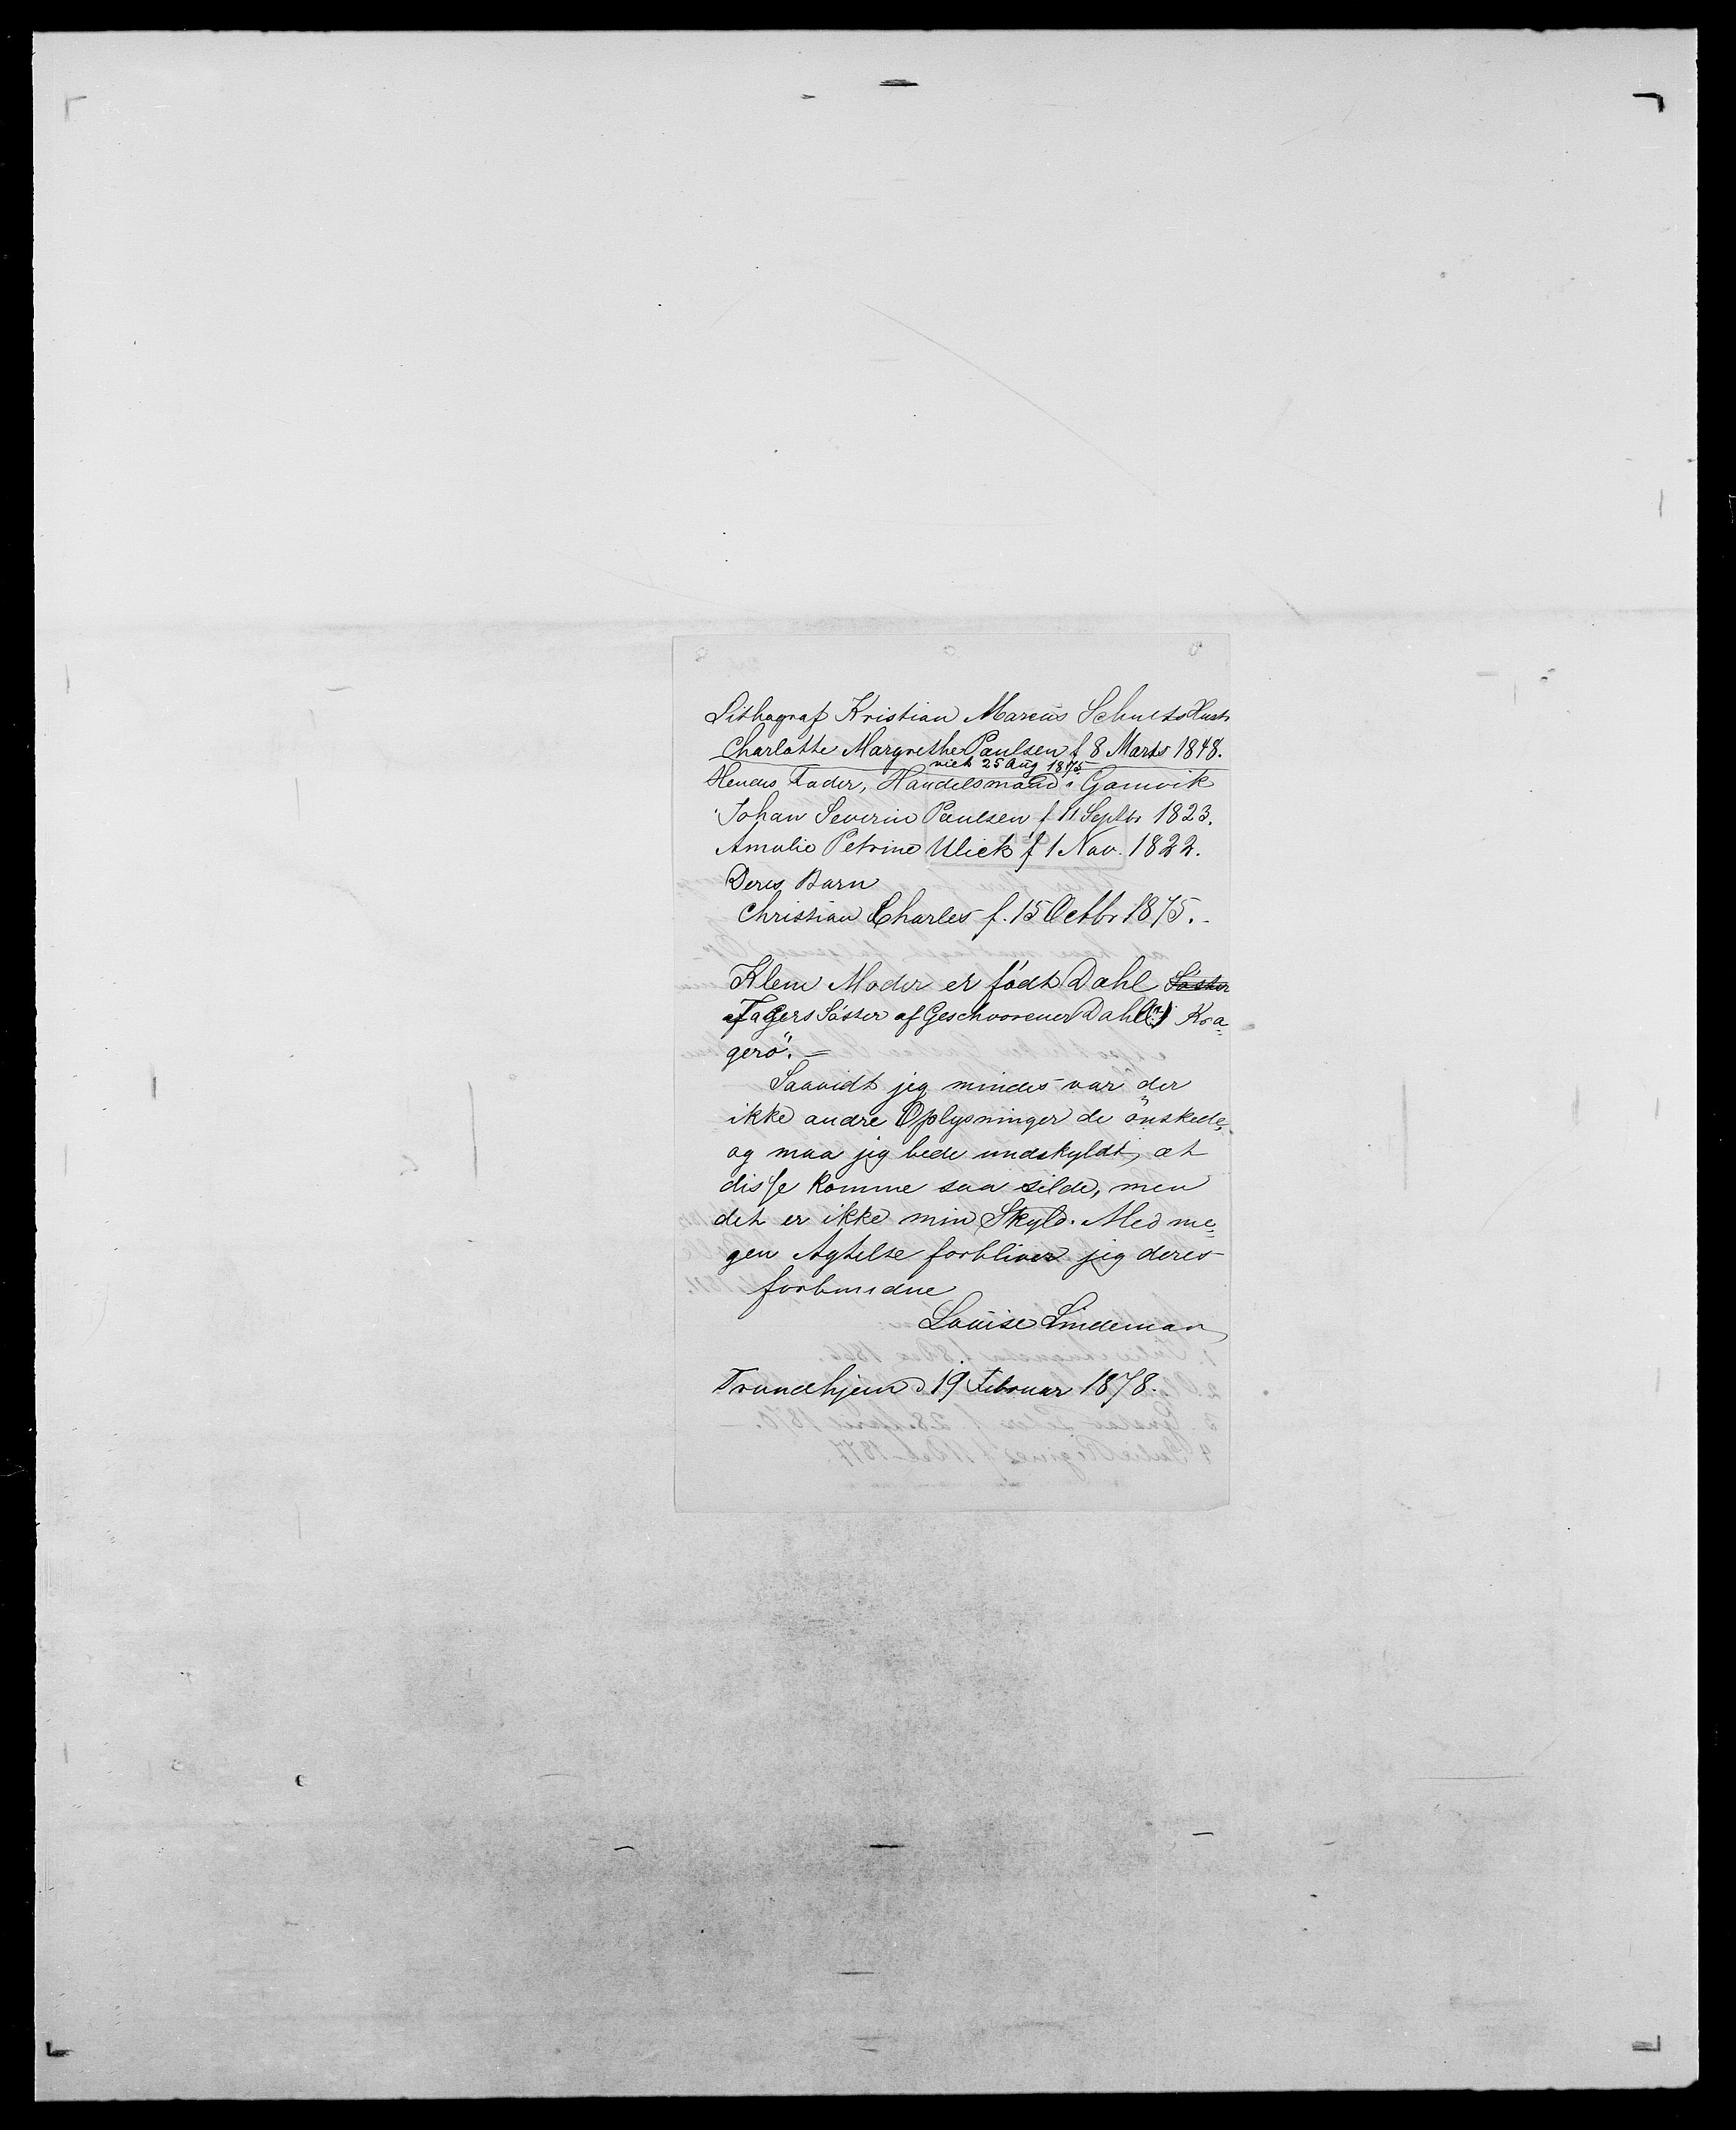 Lithograf Kristian Marcus Schultz Hustr
Charlotte Margrethe Paulsen f 8 Marts 1848.
viet 25 Aug 1875
Hendes Fader, Handelsmand i Gamvik
Johan Severin Paulsen f 11 Septbr 1823.
Amalie Petrine Ulick f 1 Nov. 1822.
Deres Barn
Christian Charles f. 15 Octbr 1875.-
Klems Moder er födt Dahl Söster
af Tagers Söster af Geschvorener Dahl i Kra=
gerö. =
Saavidt jeg mindes var der
ikke andre Oplysninger de önskede,
og maa jeg bede undskyldt, at
disse komme saa silde, men
det er ikke min Skyld. Med me=
gen Agtelse forbliver jeg deres
forbundne
Louise Lindeman
Trondhjem d 19 Februar 1878.